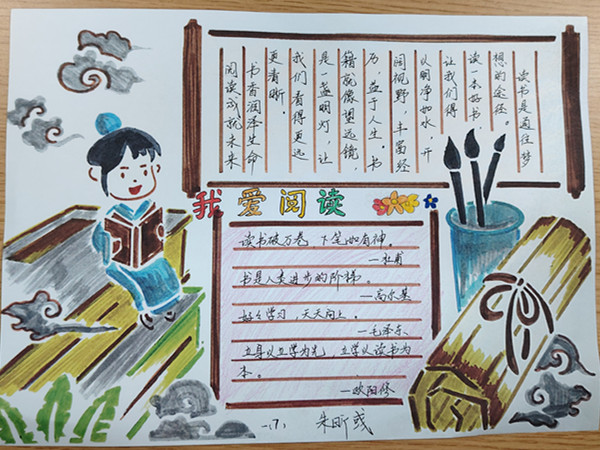 读书是通往梦
想的途径。
读一本好书,
让我们得
以明净如水,开
阔视野,丰富经
历,益于人生。书
籍就像望远镜,
是一盏明灯,让
我们看得更远
更看晰。
书香润泽生命
阅读成就未来
我爱阅读
读书破万卷 下笔如有神。
—杜甫
书是人类进步的阶梯。
—高尔基
好好学习,天天向上。
—毛泽东
立身以立学为先 立学以读书为
本。
—欧阳修
一.(7) 朱昕彧